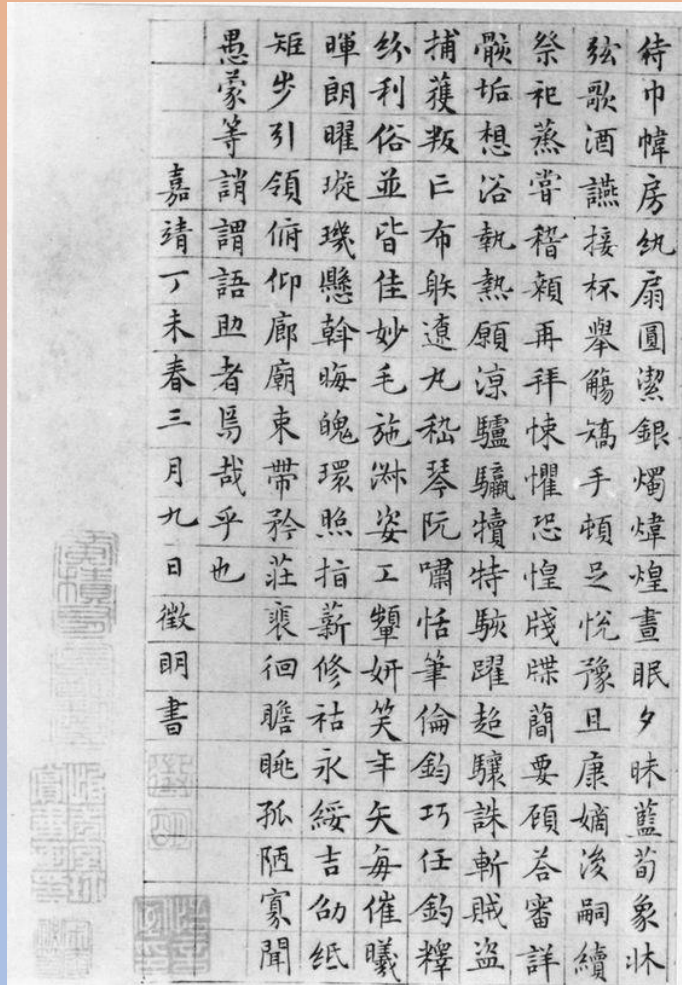 侍巾幃房紈扇圓潔銀燭煒煌晝眠夕昧藍荀象牀
弦歌酒讌接杯舉觴矯手頓足悅豫且康嫡後嗣續
祭祀蒸嘗稽顙再拜悚懼恐惶牋牒簡要顧答審詳
骸垢想浴執熱願涼驢驘犢特駭躍超驤誅斬賊盜
捕獲叛亡布躲遼丸嵇琴阮嘯恬筆倫鈞巧任釣釋
紛利俗並皆佳妙毛施淑姿工顰妍笑年矢每催曦
暉朗曜璇璣懸斡晦魄環照指薪修祜永綏吉劭紙
矩步引領俯仰廊廟束帶矜莊裴徊瞻眺孤陋寡聞
愚蒙等誚謂語助者焉哉乎也
嘉靖丁未春三月九日徵明書